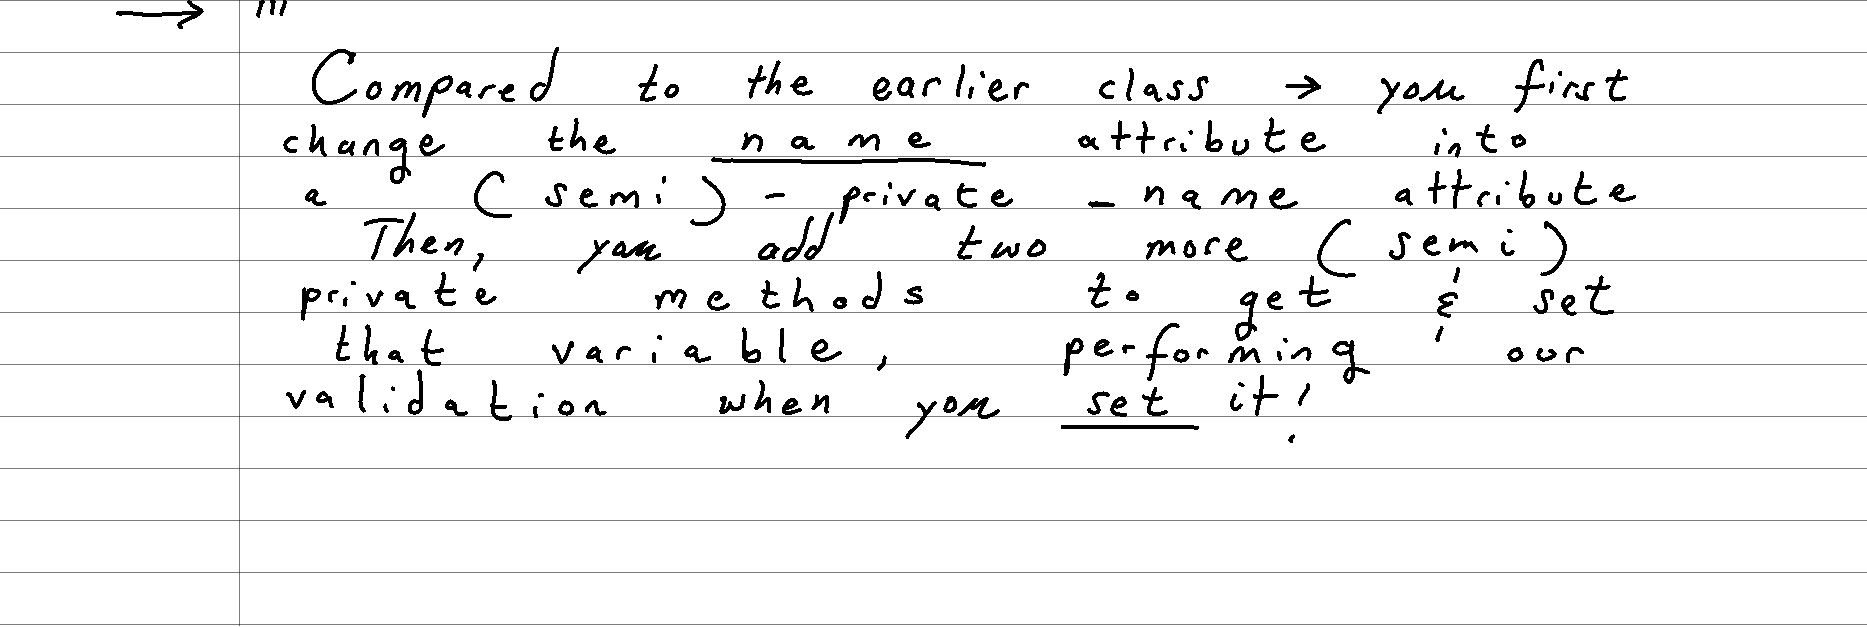 Compared to the earlier class → you first
change the name attribute into
a (semi) - private _name attribute
Then, you add two more (semi)
private methods to get & set
that variable, performing our
validation when you set it!